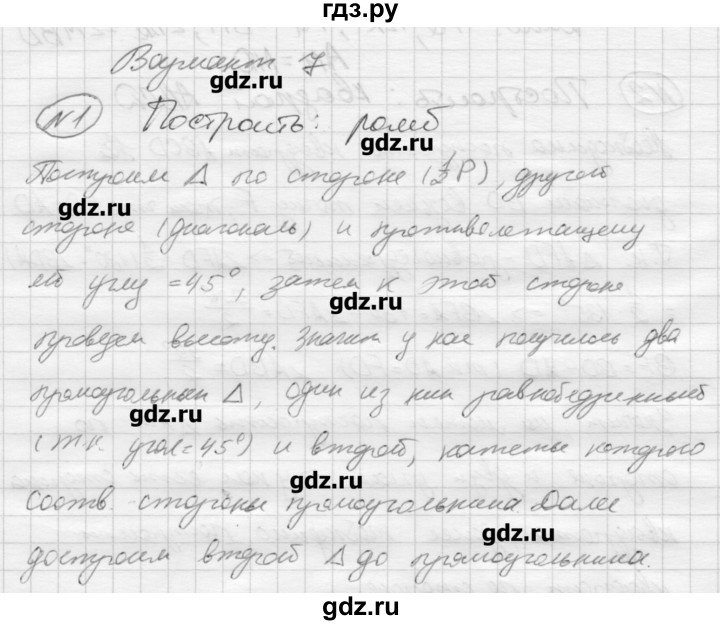 гдз.ру
Вариант 7
gdz.ru
№1 Построить: ромб
gdz.ru
Построим Δ по стороне (½P), другой
gdz.ru
стороне (диагональ) и противолежащему
ей углу =45°, затем к этой стороне
gdz.ru
проведем высоту. Значит у нас получилось два
gdz.ru
прямоугольных Δ, один из них равнобедренный
gdz.ru
(т.к. угол=45°) и второй, катеты которого
gdz.ru
соотв. стороны прямоугольника Далее
gdz.ru
достроим второй Δ до прямоугольника.
gdz.ru
gdz.ru